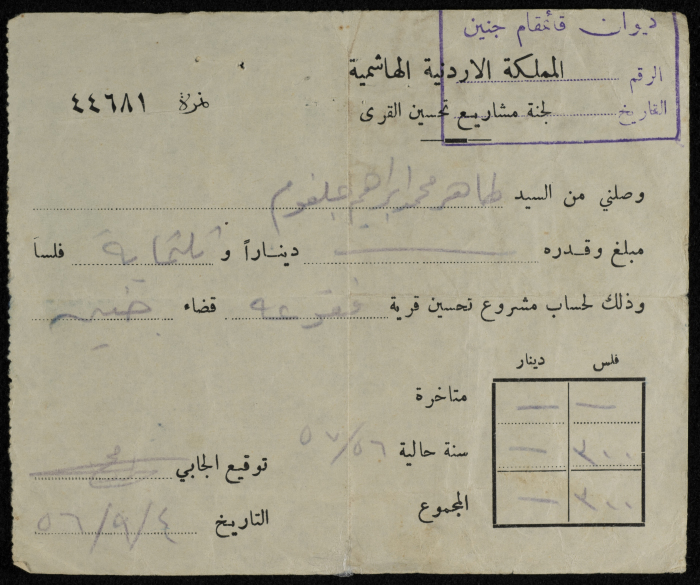 ديوان قائمقام جنين
الرقم
التاريخ
المملكة الاردنية الهاشمية
لجنة مشاريع تحسين القرى
نمرة ٤٤٦٨١
وصلني من السيد طاهر محمد ابراهيم جلغوم
مبلغ وقدره ـــ ديناراً و ثلثماية فلساً
وذلك لحساب مشروع تحسين قرية فقوعه قضاء جنين
فلس دينار
متاخرة — —
سنة حالية ٥٧/٥٦ ٣٠٠ —
المجموع ٣٠٠ —
توقيع الجابي
التاريخ ٥٦/٩/٤